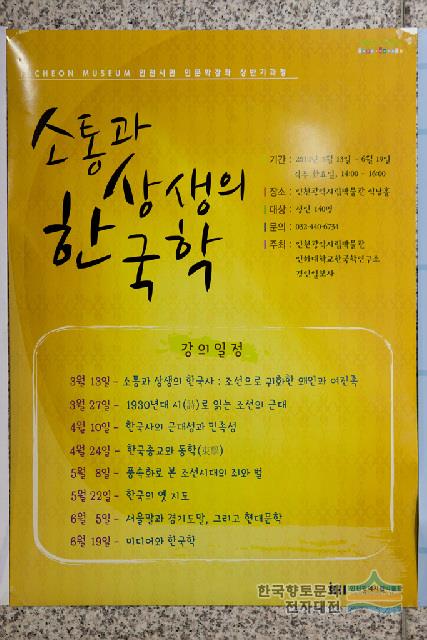 INCHEON MUSEUM 인천시립 인문학강좌 상반기과정
소통과
상생의
한국학
기간 : 3월 13일 - 6월 19일
화요일, 14:00 - 16:00
장소 : 인천광역시립박물관 석남홀
대상 : 성인 140명
문의 : 032-440-6734
주최 : 인천광역시립박물관
인하대학교한국학연구소
경인일보사
강의일정
3월 13일 - 소통과 상생의 한국사 : 조선으로 귀화한 왜인과 여진족
3월 27일 - 1930년대 시(詩)로 읽는 조선의 근대
4월 10일 - 한국사의 근대성과 민족성
4월 24일 - 한국종교와 동학(東學)
5월 8일 - 풍속화로 본 조선시대의 죄와 벌
5월 22일 - 한국의 옛 지도
6월 5일 - 서울말과 경기도말, 그리고 현대문학
6월 19일 - 미디어와 한국학
인천광역시립박물관
한국향토문화
전자대전